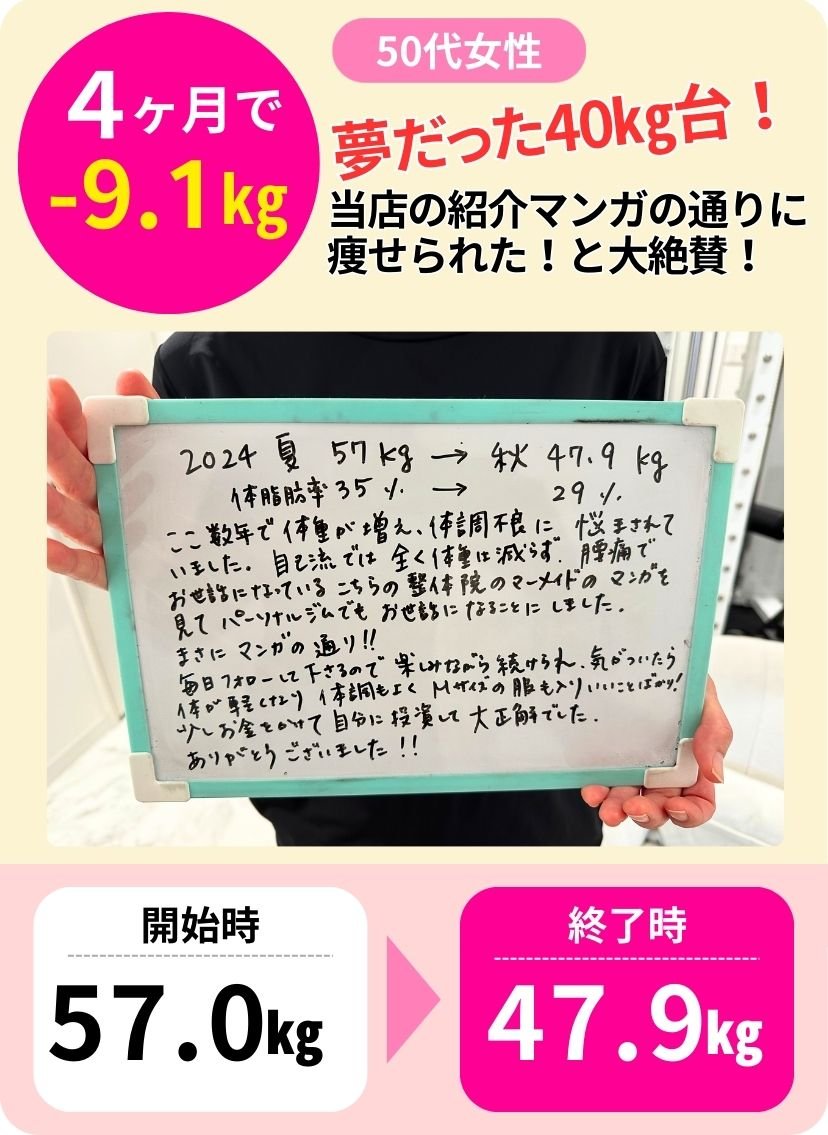 4ヶ月で
-9.1kg
50代女性
夢だった40kg台！
当店の紹介マンガの通りに
痩せられた！と大絶賛！
2024 夏 57kg → 秋 47.9 kg
体脂肪率 35% → 29%
ここ数年で体重が増え、体調不良に 悩まされて
いました。自己流では全く体重は減らず、腰痛で
お世話になっているこちらの整体院のマーメイドのマンガを
見てパーソナルジムでもお世話になることにしました。
まさにマンガの通り!!
毎日フォローして下さるので楽しみながら続けられ、気がついたら
体が軽くなり体調もよくMサイズの服も入りいいことばかり!
少しお金をかけて自分に投資して大正解でした。
ありがとうございました!!
開始時
57.0kg
終了時
47.9kg